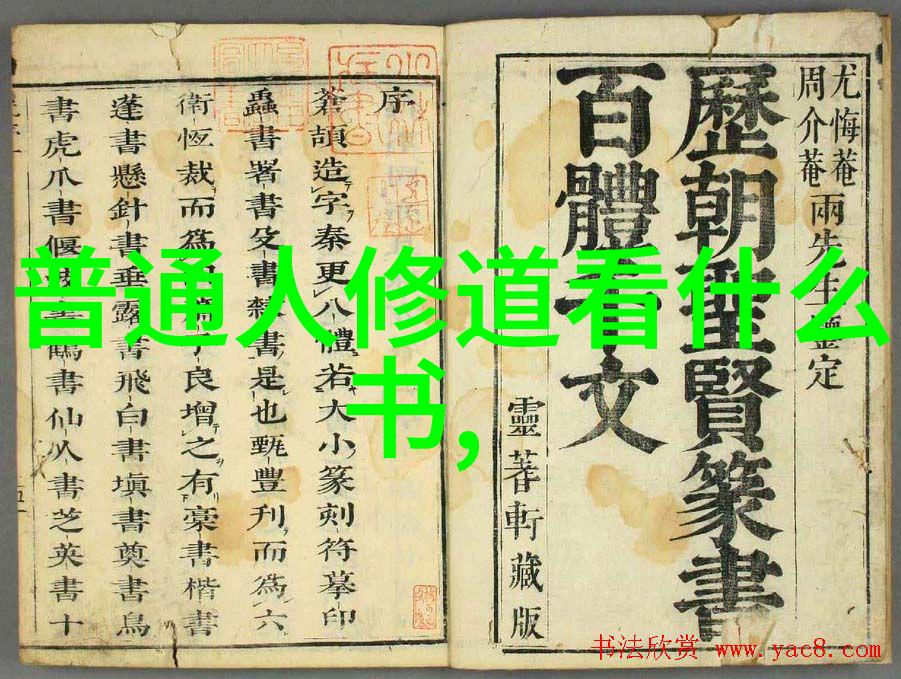 尤悔菴
周介菴
兩先生鑒定
歷朝聖賢篆書
百體千文
靈蓍軒藏版
序
蒼頡造字秦更八體若大小篆刻符摹印
蟲書署書殳書隸書是也甄豐刋而爲六
衛恆裁而爲四
良增之有藁書楷書
蓬書懸針書垂露書飛白書塡書奠書鳥
書虎爪書偃波書鶴書仙人書芝英書十
普通人修道看什么
书,
书法欣赏 www.yac8.com